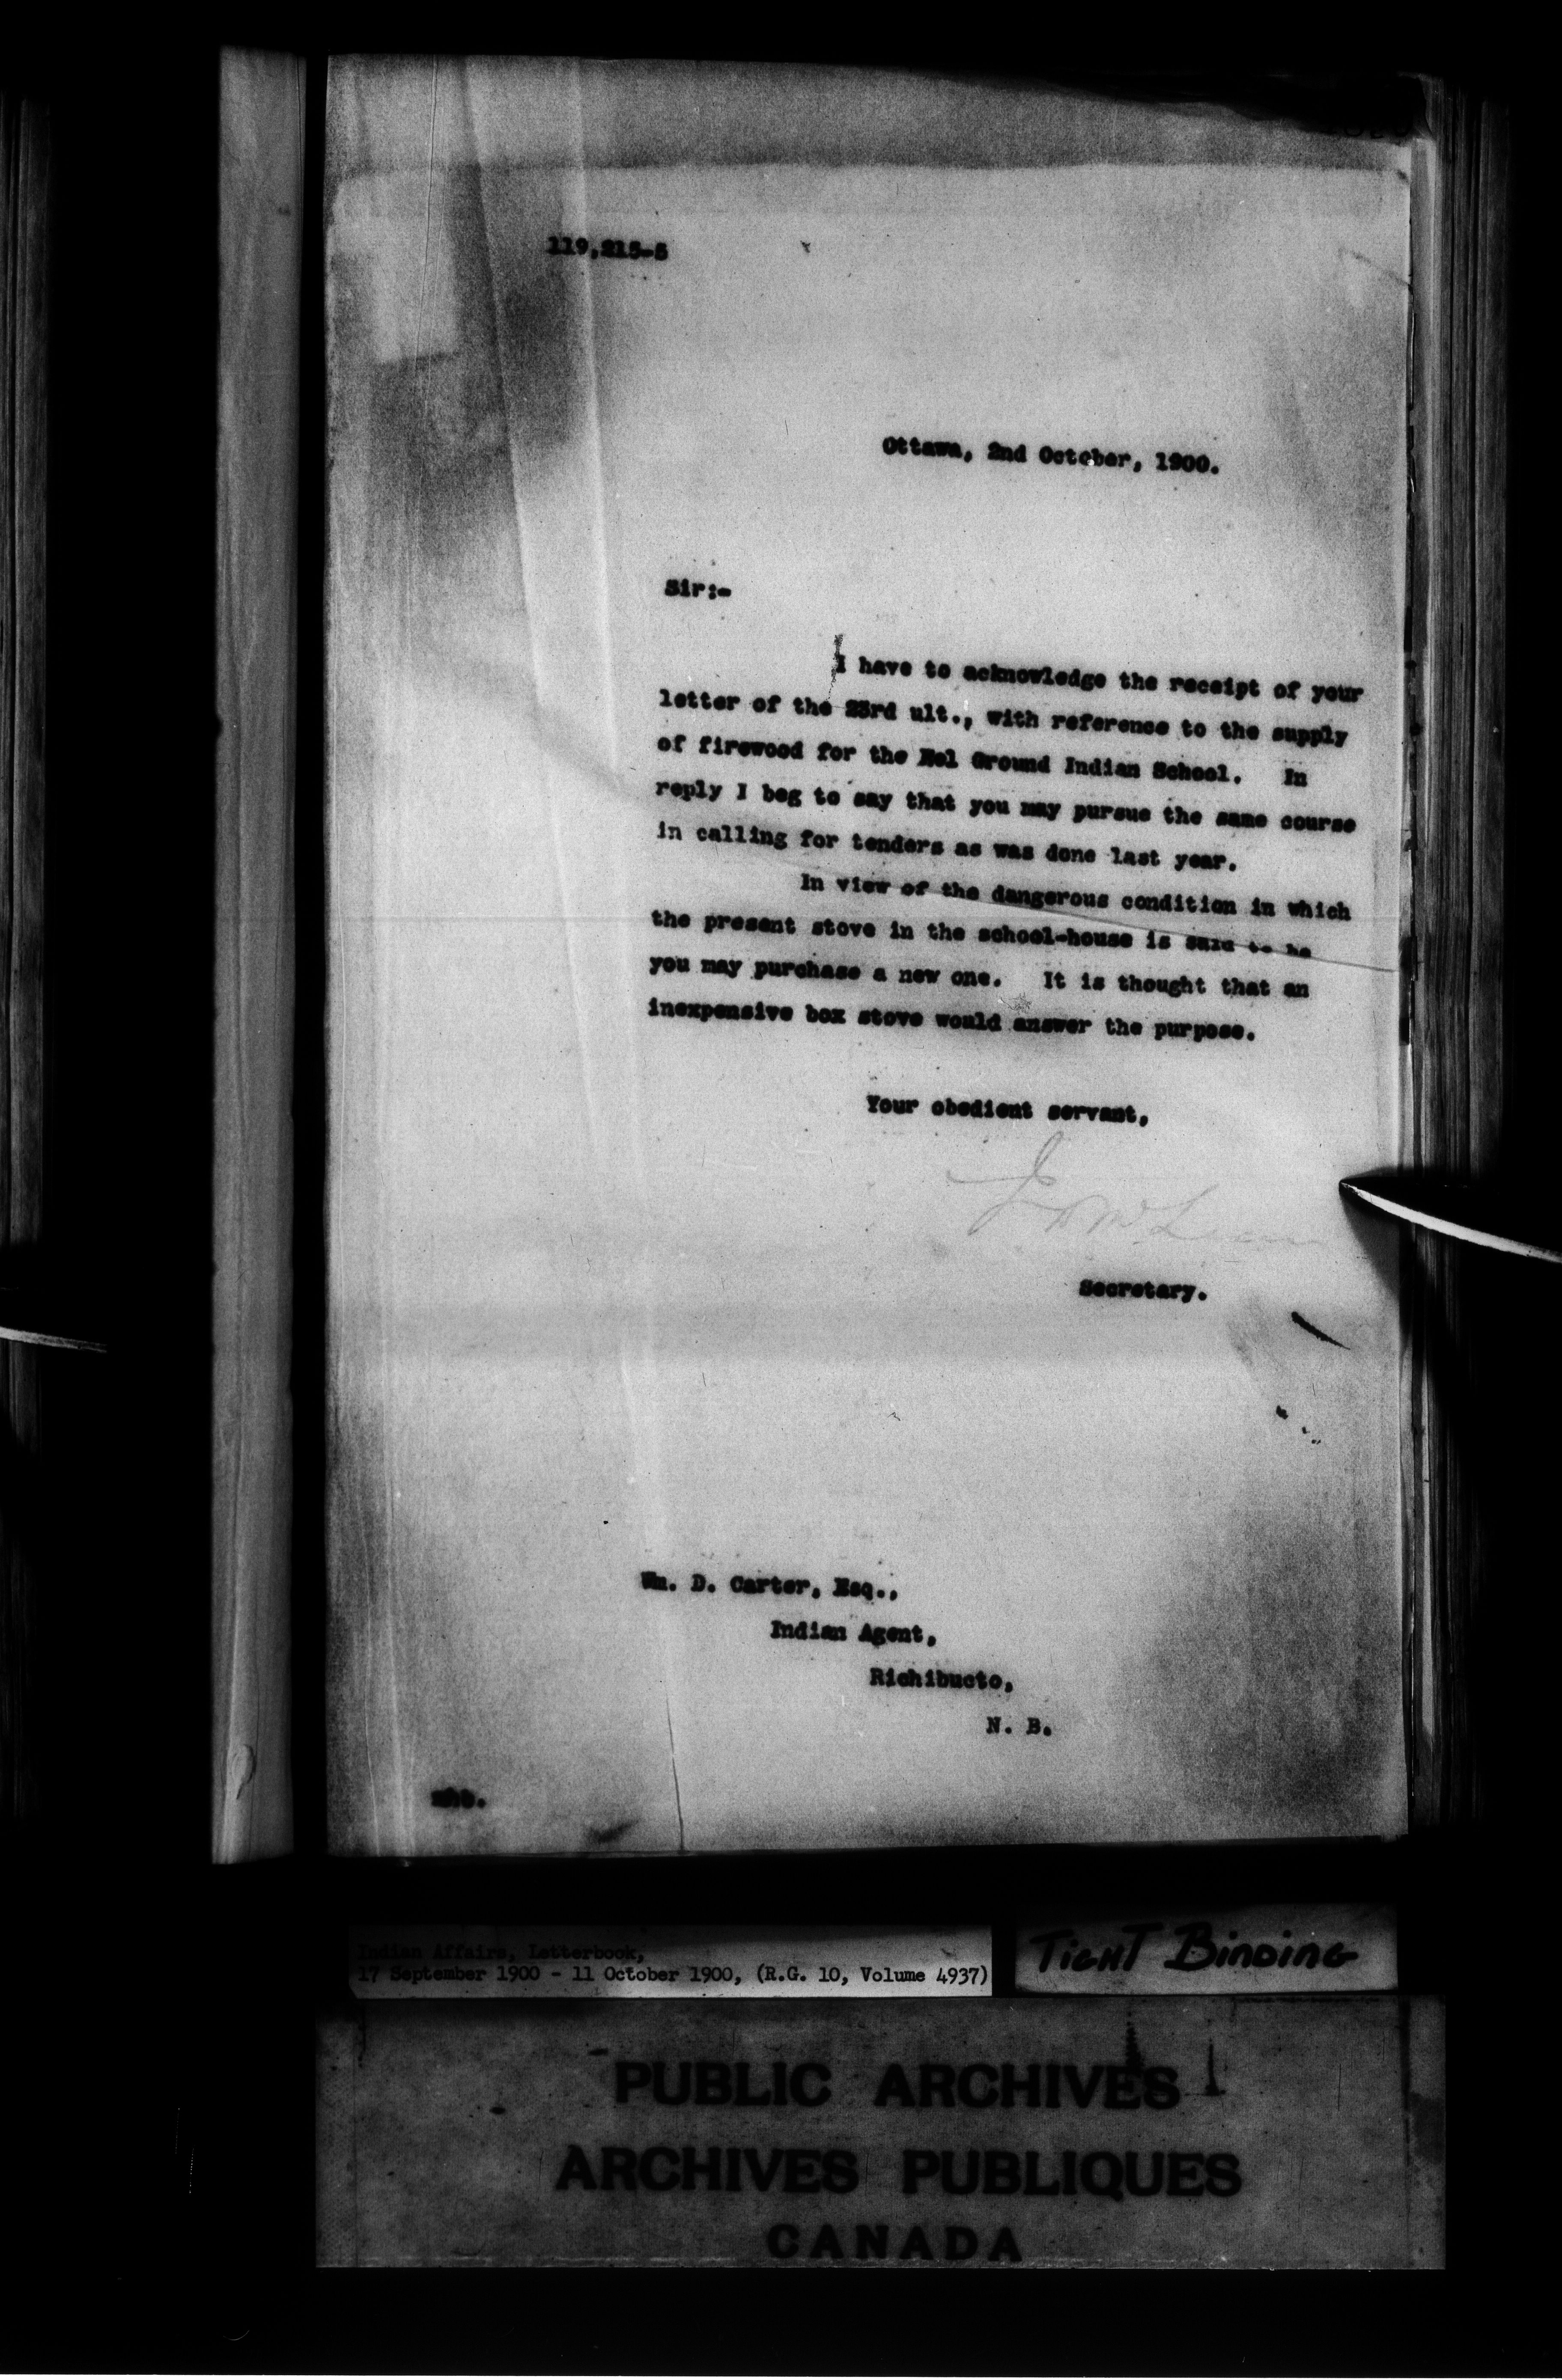 119,215-5
Ottawa, 2nd October, 1900.
Sir:-
I have to acknowledge the receipt of your
letter of the 23rd ult., with reference to the supply
of firewood for the Eel Ground Indian School. In
reply I beg to say that you may pursue the same course
in calling for tenders as was done last year.
In view of the dangerous condition in which
the present stove in the school-house is said to be
you may purchase a new one. It is thought that an
inexpensive box stove would answer the purpose.
Your obedient servant,
J D McLean
Secretary.
Wm. D. Carter, Esq.,
Indian Agent,
Richibucto,
N. B.
Indian Affairs, Letterbook,
17 September 1900 - 11 October 1900, (R.G. 10, Volume 4937)
TIGHT BINDING
PUBLIC ARCHIVES
ARCHIVES PUBLIQUES
CANADA